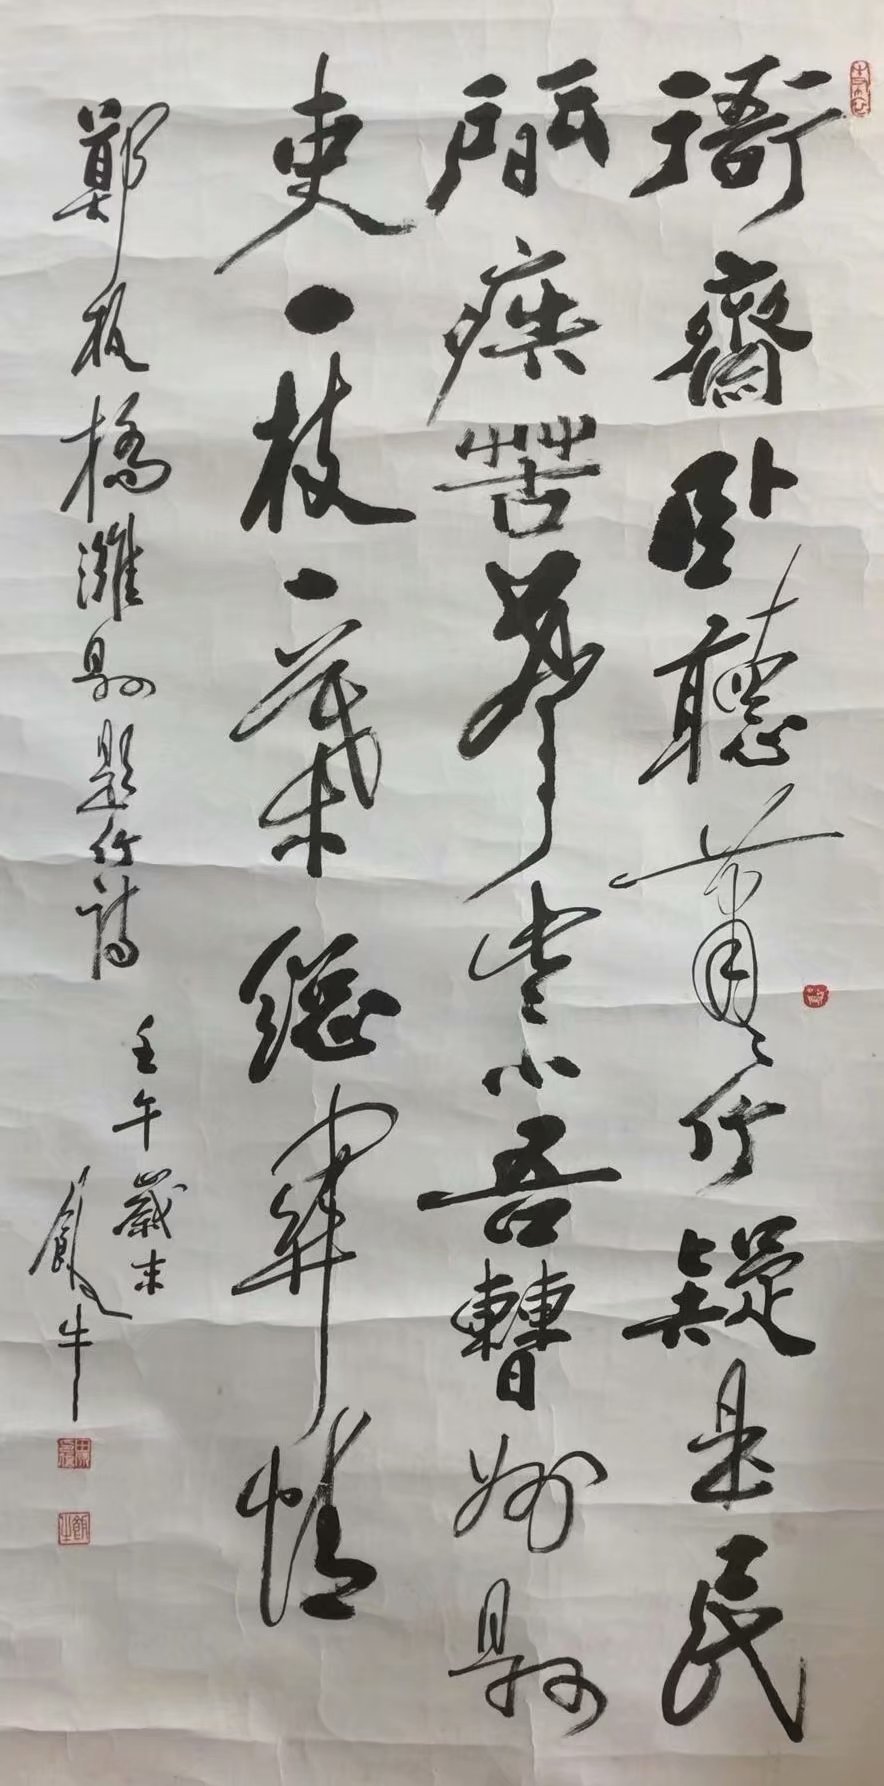 衙齋卧聽蕭〻竹疑是民
間疾苦聲些小吾曹州縣
吏一枝一葉總關情
鄭板橋濰縣題竹詩
壬午歲末
飯牛